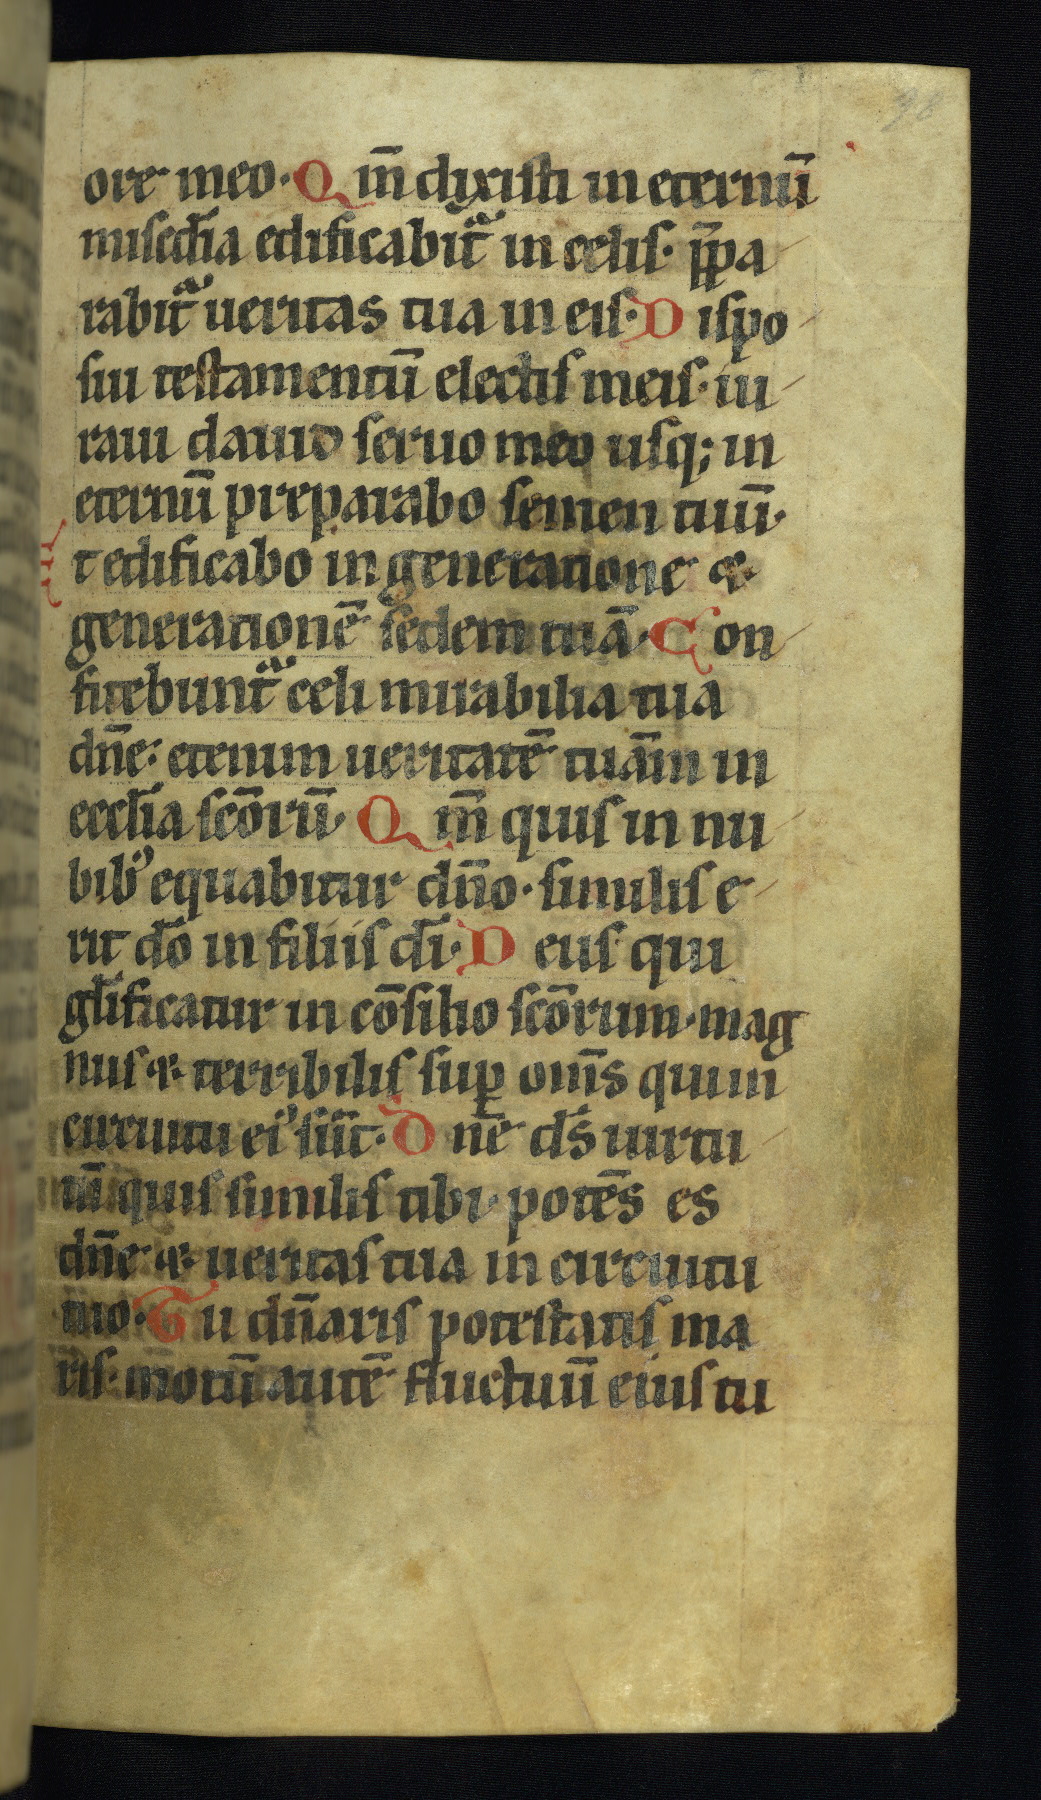 ore meo. Qm̄ dyxisti in eternū
misedīa edificabit᷑ in celis. p̄pa
rabit᷑ ueritas tua in eis. Dispo
sui testamentū electis meis. iu
raui dauid seruo meo usq; in
eternū preparabo semen tuū.
Et edificabo in generatione &
generationē sedem tuā. Con
fitebunt᷑ celi mirabilia tua
dn̄e: etenim ueritatē tuām in
eccl̄ia scōrū. Qm̄ quis in nu
bibꝰ equabitur dn̄o. similis e
rit dō in filiis dī. Deus qui
gl̄ificatur in cōsilio scōrum. mag
nus & terribilis suꝑ om̄s qui in
circuitu eiꝰ sūt. Dn̄e ds̄ uirtu
tū quis similis tibi. potēs es
dn̄e & ueritas tua in circuitu
tuo. Tu dn̄aris potestatis ma
ris. m̄otū autē fluctuū eius tu